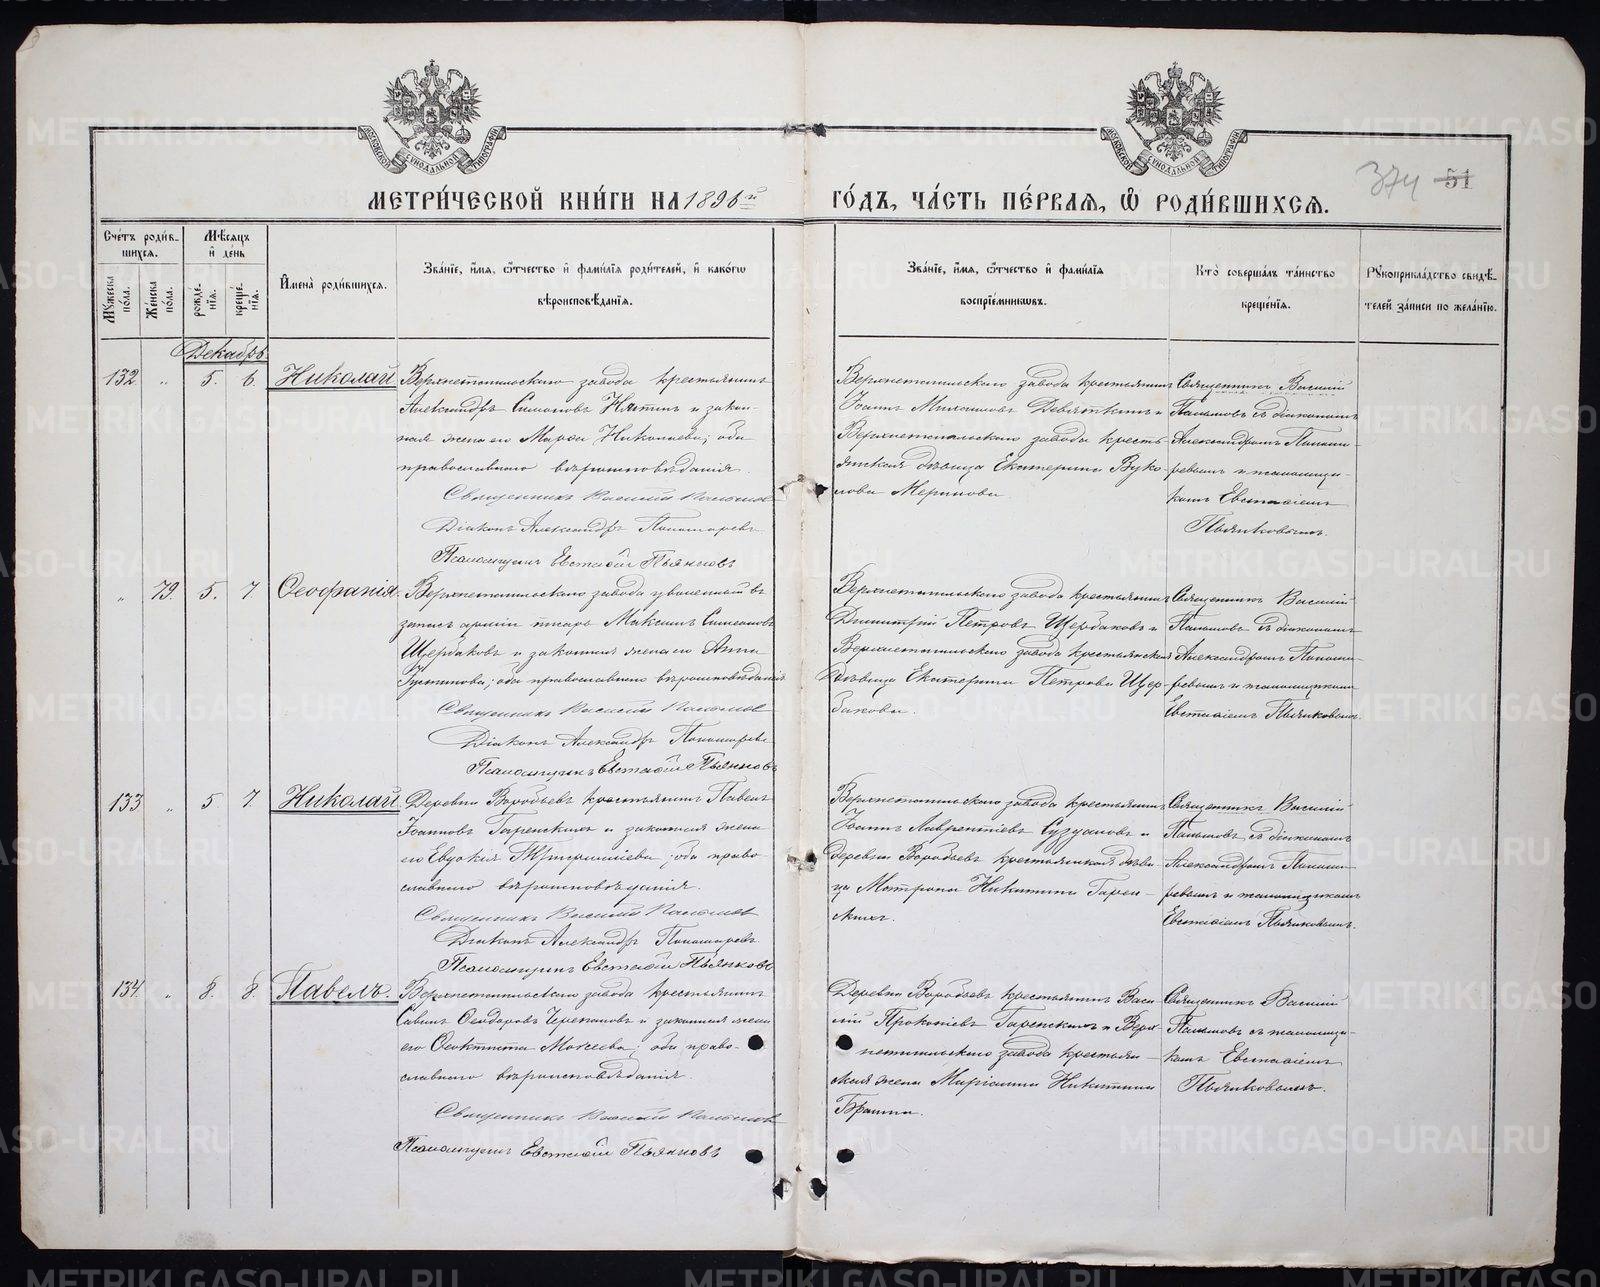 МЕТРИ́ЧЕСКОЙ КНИ́ГИ НА 1896й
ГО́ДЪ, ЧА́СТЬ ПЕ́РВАЯ, Ѿ РОДИ́ВШИХСЯ.
374 51
Сче́тъ роди́вшихся.
Мꙋ́жеска по́ла.
Же́нска по́ла.
Мѣ́сяцъ и҆ де́нь
рожде́нїя.
креще́нїя.
И҆мена̀ роди́вшихся.
Зва́нїе, и҆́мя, ѻ҆́тчество и҆ фами́лїя роди́телей, и҆ како́гѡ
вѣроисповѣ́данїя.
Зва́нїе, и҆́мя, ѻ҆́тчество и҆ фами́лїя
воспрїе́мниковъ.
Кто̀ соверша́лъ та́инство
креще́нїя.
Рꙋкоприкла́дство свидѣ́-
телей за́писи по жела́нїю.
Декабрь
132. " 5. 6. Николай
Верхнетагильскаго завода крестьянинъ
Александръ Симоновъ и закон-
ная жена его Марѳа Николаева; оба
православнаго вѣроисповѣданія.
Священникъ Василій
Діаконъ Александръ Пономаревъ
Псаломщикъ Евстаѳій Пьянковъ
Верхнетагильскаго завода крестьянинъ
Іоаннъ Девяткинъ и
Верхнетагильскаго завода кресть-
янская дѣвица Екатерина Вуко-
лова Меринова.
Священникъ Василій
съ діакономъ
Александромъ Понома-
ревымъ и псаломщи-
комъ Евстаѳіемъ
Пьянковымъ.
" 79. 5. 7. Ѳеофанія.
Верхнетагильскаго завода уволенный въ
запасъ арміи писарь Максимъ Симеоновъ
Щербаковъ и законная жена его Анна
Іустинова; оба православнаго вѣроисповѣданія
Священникъ Василій
Діаконъ Александръ Пономаревъ
Псаломщикъ Евстаѳій Пьянковъ
Верхнетагильскаго завода крестьянинъ
Димитрій Петровъ Щербаковъ и
Верхнетагильскаго завода крестьянская
дѣвица Екатерина Петрова Щер-
бакова.
Священникъ Василій
съ діакономъ
Александромъ Понома-
ревымъ и псаломщикомъ
Евстаѳіемъ Пьянковымъ.
133 " 5 7. Николай
Деревни Воробьевъ крестьянинъ Павелъ
Іоанновъ Гаренскихъ и законная жена
его Евдокія; оба право-
славнаго вѣроисповѣданія.
Священникъ Василій
Діаконъ Александръ Пономаревъ
Псаломщикъ Евстаѳій Пьянковъ
Верхнетагильскаго завода крестьянинъ
Іоаннъ Лаврентіевъ и
деревни Воробьевъ крестьянская дѣви-
ца Матрона Никитина Гарен-
скихъ.
Священникъ Василій
съ діакономъ
Александромъ Понома-
ревымъ и псаломщикомъ
Евстаѳіемъ Пьянковымъ.
134. " 8. 8. Павелъ.
Верхнетагильскаго завода крестьянинъ
Савинъ Ѳеодоровъ Черепановъ и законная жена
его Ѳеоктиста Мокеева; оба право-
славнаго вѣроисповѣданія.
Священникъ Василій
Псаломщикъ Евстаѳій Пьянковъ
Деревни Воробьевъ крестьянинъ Васи-
лій Прокопіевъ Гаренскихъ и Верх-
нетагильскаго завода крестьян-
ская жена Маріамна Никитина
Священникъ Василій
съ псаломщи-
комъ Евстаѳіемъ
Пьянковымъ.
METRIKI.GASO-URAL.RU